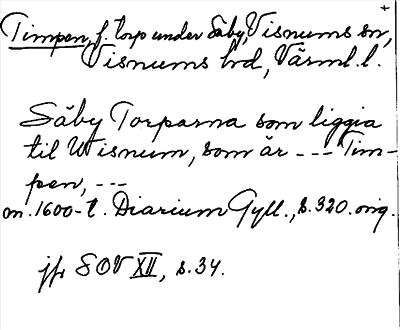 Timpen, f. torp under Säby, Visnums sn,
Visnums hd, Värml. l.
Säby Torparna som liggia
til Wisnum, som är --- Tim-
pen, ---
m. 1600-t. Diarium Gyll., s. 320. orig.
jfr SOV XII, s. 34.